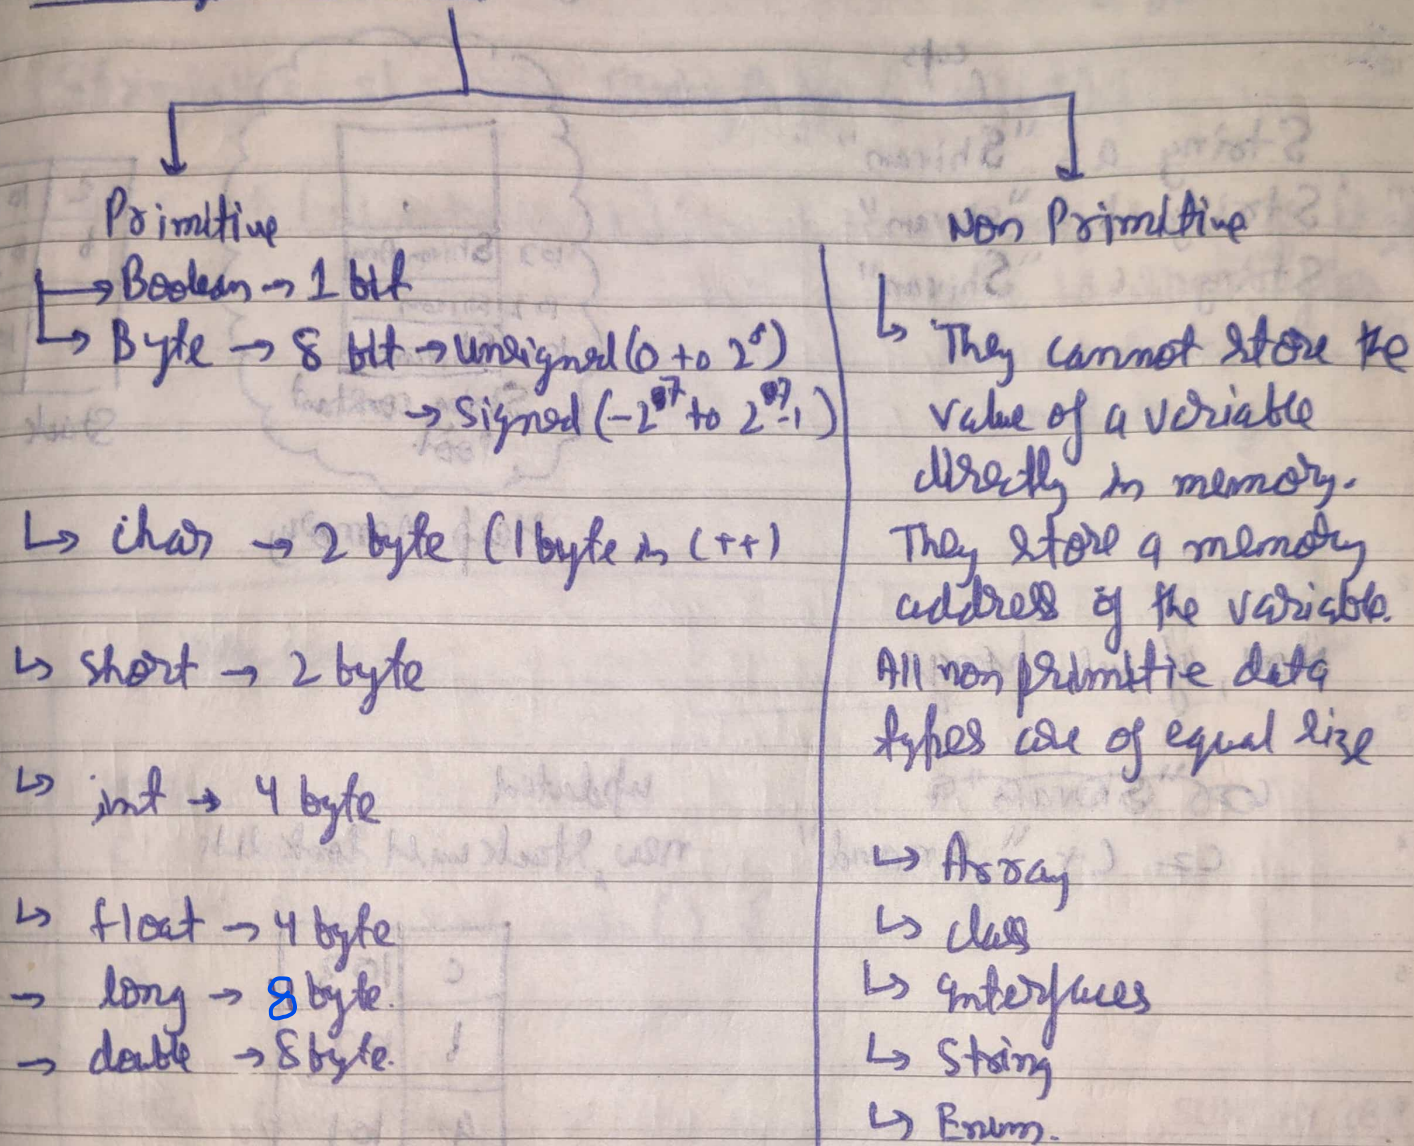 Primitive
→ Boolean → 1 bit
↳ Byte → 8 bit → Unsigned (0 to 2⁸)
→ Signed (-2⁷ to 2⁷-1)
↳ char → 2 byte (1 byte in C++)
↳ short → 2 byte
↳ int → 4 byte
↳ float → 4 byte
→ long → 8 byte.
→ double → 8 byte.
Non Primitive
↳ They cannot store the
value of a variable
directly in memory.
They store a memory
address of the variable.
All non primitie data
types are of equal size
↳ Array
↳ class
↳ Interfaces
↳ String
↳ Enum.